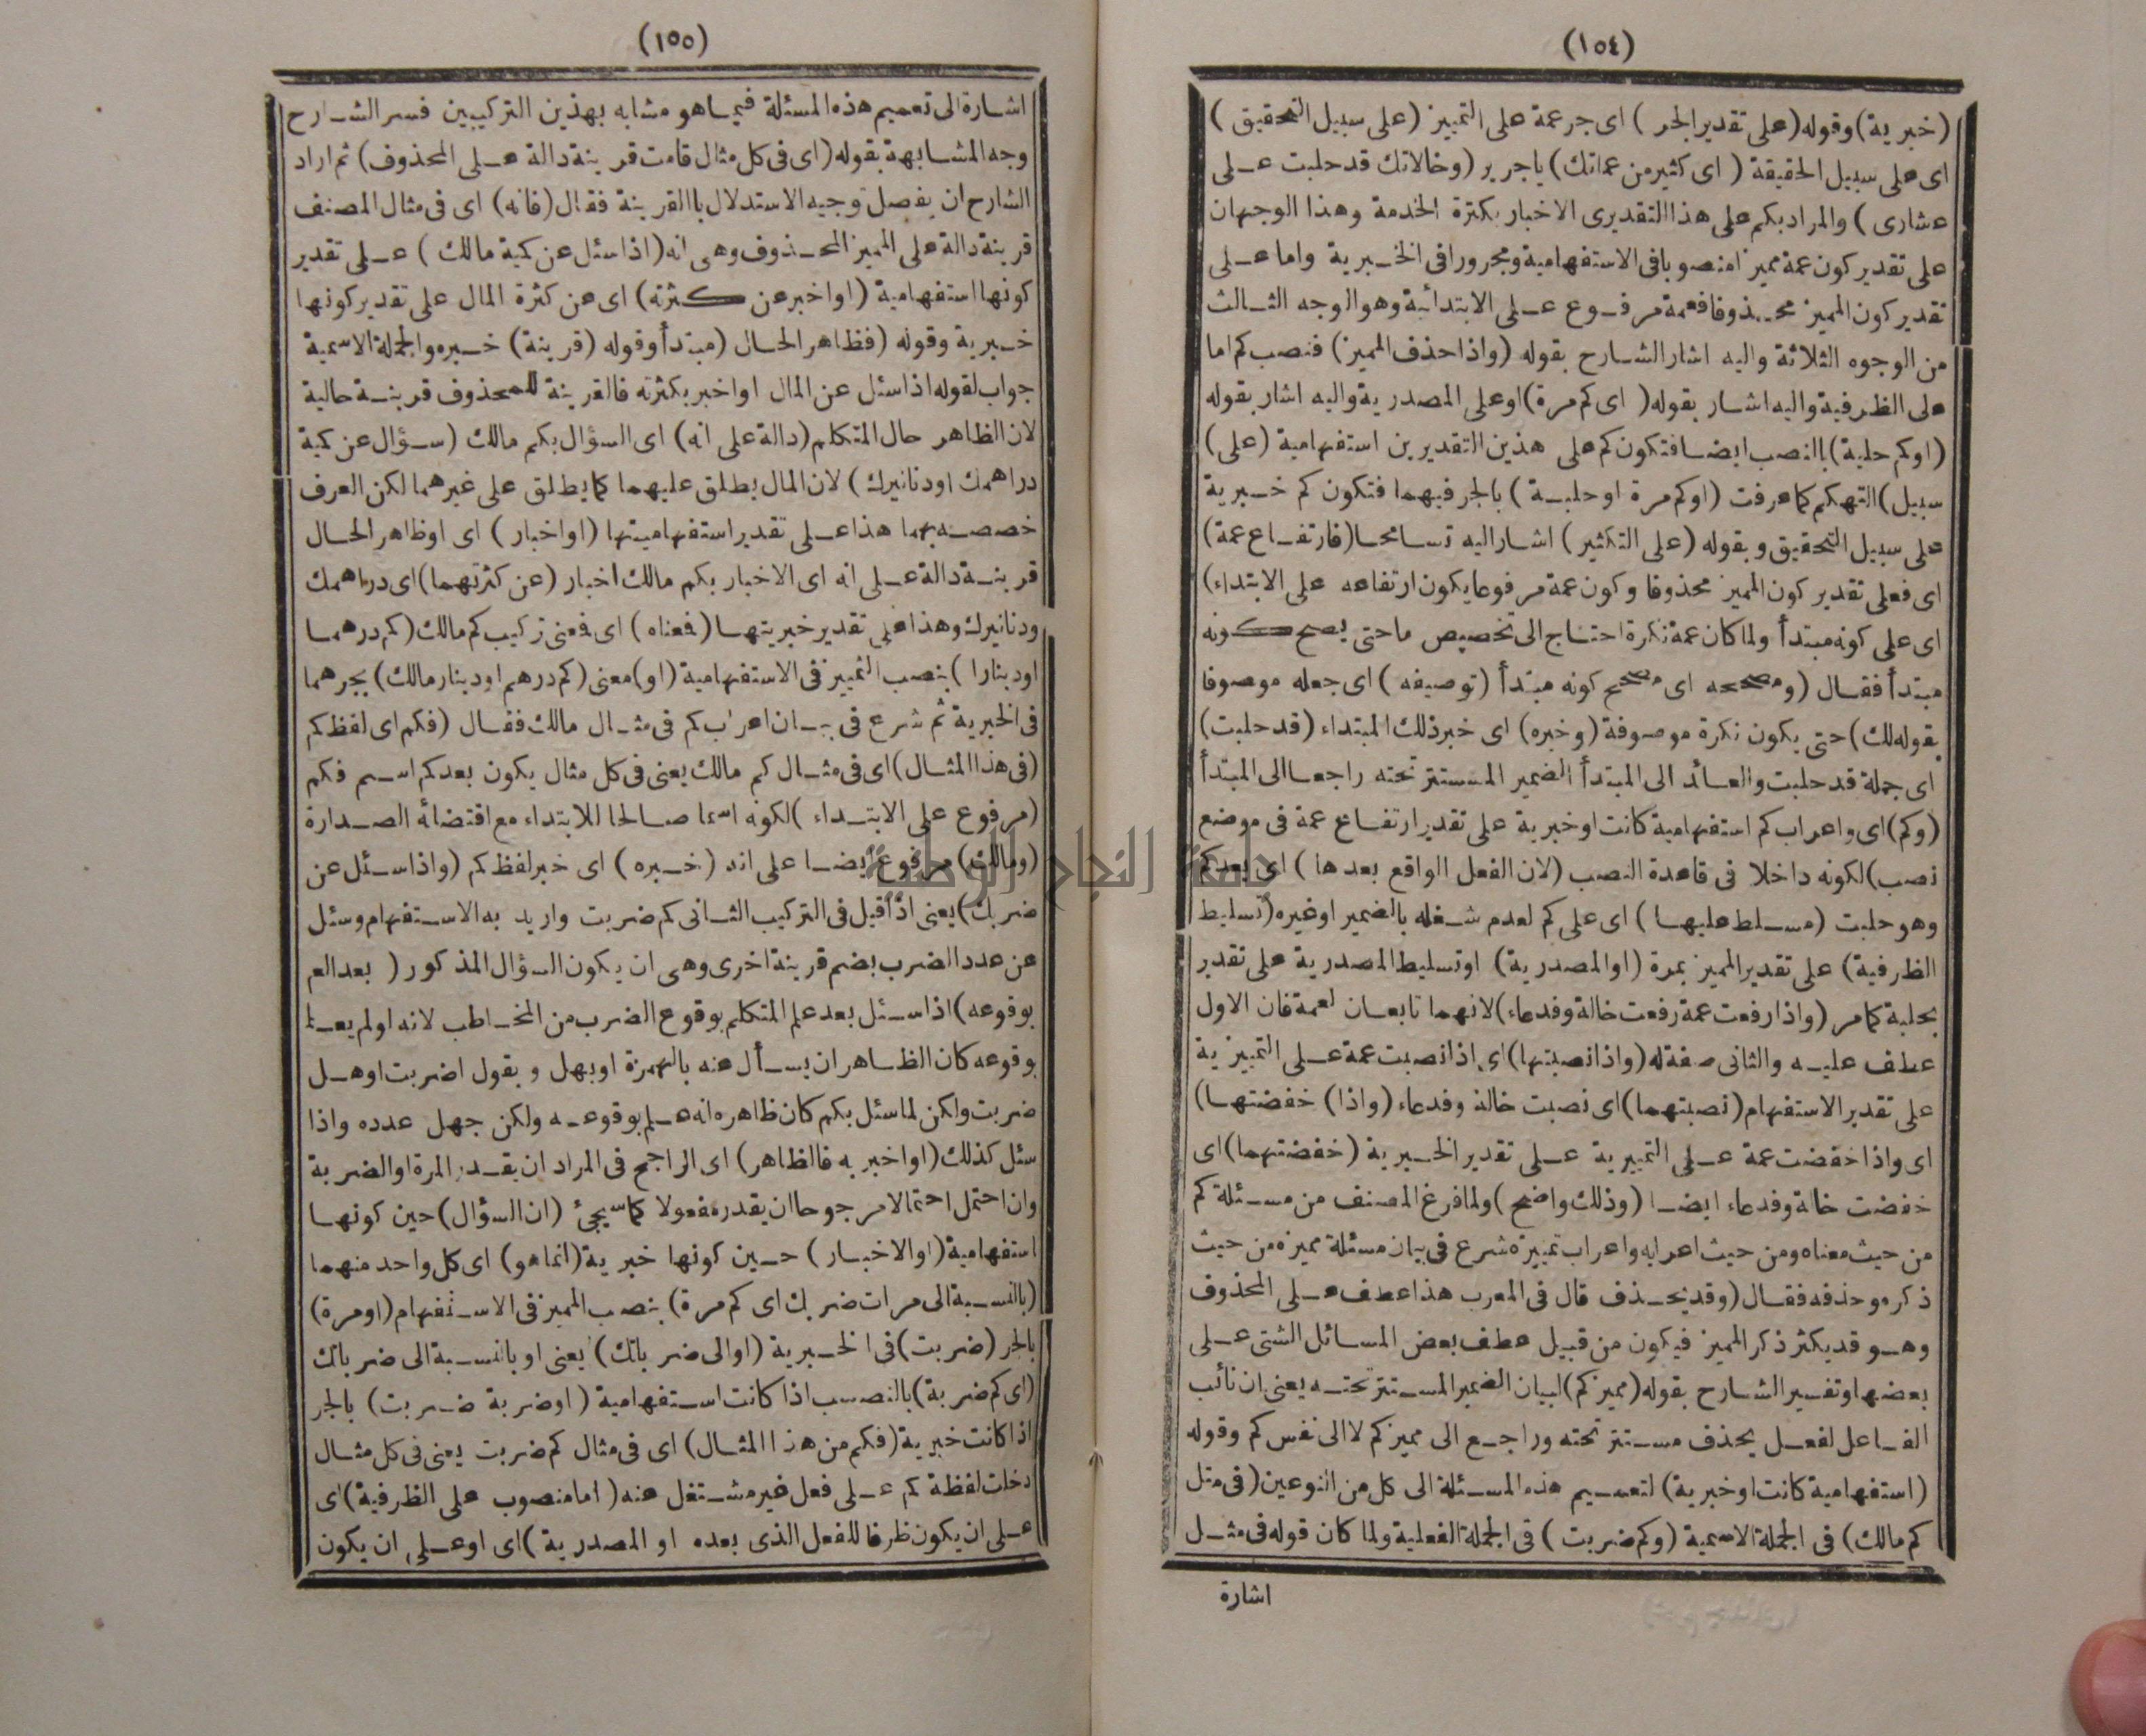 (١٥٤)
(خبرية) وقوله (على تقدير الجر) اى جر عمة على التمييز (على سبيل التحقيق)
اى على سبيل الحقيقة (اى كثير من عماتك) يا جرير (وخالاتك قد حلبت على
عشارى) والمراد بكم على هذا التقديرى الاخبار بكثرة الخدمة وهذا الوجهان
على تقدير كون عمة مميزا منصوبا فى الاستفهامية ومجرورا فى الخبرية واما على
تقدير كون المميز محذوفا فعمة مرفوع على الابتدائية وهو الوجه الثالث
من الوجوه الثلاثة واليه اشار الشارح بقوله (واذا حذف المميز) فنصب كم اما
على الظرفية واليه اشار بقوله (اى كم مرة) او على المصدرية واليه اشار بقوله
(او كم حلبة) بالنصب ايضا فتكون كم على هذين التقديرين استفهامية (على)
سبيل) التهكم كما عرفت (او كم مرة او حلبة) بالجر فيهما فتكون كم خبرية
على سبيل التحقيق وبقوله (على التكثير) اشار اليه تسامحا (فارتفاع عمة)
اى فعلى تقدير كون المميز محذوفا وكون عمة مرفوعا يكون ارتفاعه على الابتداء)
اى على كونه مبتدأ ولما كان عمة نكرة احتاج الى تخصيص ما حتى يصح كونه
مبتدأ فقال (ومصححه اى مصحح كونه مبتدأ (توصيفه) اى جعله موصوفا
بقوله لك) حتى يكون نكرة موصوفة (وخبره) اى خبر ذلك المبتداء (قد حلبت)
اى جملة قد حلبت والعائد الى المبتدأ الضمير المستتر تحته راجعا الى المبتدأ
(وكم) اى واعراب كم استفهامية كانت او خبرية على تقدير ارتفاع عمة فى موضع
نصب) لكونه داخلا فى قاعدة النصب (لان الفعل الواقع بعدها) اى بعد كم
وهو حلبت (مسلط عليها) اى على كم لعدم شغله بالضمير او غيره (تسليط
الظرفية) على تقدير المميز بمرة (او المصدرية) او تسليط المصدرية على تقدير
بحلبة كما مر (واذا رفعت عمة رفعت خالة وفدعاء) لانهما تابعان لعمة فان الاول
عطف عليه والثانى صفة له (واذا نصبتها) اى اذا نصبت عمة على التمييزية
على تقدير الاستفهام (نصبتهما) اى نصبت خالة وفدعاء (واذا) خفضتها)
اى واذا خفضت عمة على التمييرية على تقدير الخبرية (خفضتهما) اى
خفضت خالة وفدعاء ايضا (وذلك واضح) ولما فرغ المصنف من مسئلة كم
من حيث معناه ومن حيث اعرابه واعراب تمييزه شرع فى بيان مسئلة مميزه من حيث
ذكره وحذفه فقال (وقد يحذف قال فى المعرب هذا عطف على المحذوف
وهو قد يكثر ذكر المميز فيكون من قبيل عطف بعض المسائل الشتى على
بعضها وتفسير الشارح بقوله (مميز كم) لبيان الضمير المستتر تحته يعنى ان نائب
الفاعل لفعل يحذف مستتر تحته وراجع الى مميز كم لا الى نفس كم وقوله
(استفهامية كانت او خبرية) لتعميم هذه المسئلة الى كل من النوعين (فى مثل
كم مالك) فى الجملة الاسمية (وكم ضربت) فى الجملة الفعلية ولما كان قوله فى مثل
اشارة
(١٥٥)
اشارة الى تعميم هذه المسئلة فيما هو مشابه بهذين التركيبين فسر الشارح
وجه المشابهة بقوله (اى فى كل مثال قامت قرينة دالة على المحذوف) ثم اراد
الشارح ان يفصل توجيه الاستدلال باالقرينة فقال (فانه) اى فى مثال المصنف
قرينة دالة على المميز المحذوف وهى انه (اذا سئل عن كمية مالك) على تقدير
كونها استفهامية (او اخبر عن كثرته) اى عن كثرة المال على تقدير كونها
خبرية وقوله (فظاهر الحال (مبتدأ وقوله (قرينة) خبره والجملة الاسمية
جواب لقوله اذا سئل عن المال او اخبر بكثرته فالقرينة للمحذوف قرينة حالية
لان الظاهر حال المتكلم (دالة على انه) اى السؤال بكم مالك (سؤال عن كمية
دراهمك او دنانيرك) لان المال يطلق عليهما كما يطلق على غيرهما لكن العرف
خصصه بهما هذا على تقدير استفهاميتها (او اخبار) اى او ظاهر الحال
قرينة دالة على انه اى الاخبار بكم مالك اخبار (عن كثرتهما) اى دراهمك
ودنانيرك وهذا على تقدير خبريتها (فعناه) اى فعنى تركيب كم مالك (كم درهما
او دينارا) بنصب التمييز فى الاستفهامية (او) معنى (كم درهم او دينار مالك) بجرهما
فى الخبرية ثم شرع فى بيان اعراب كم فى مثال مالك فقال (فكم اى لفظ كم
(فى هذا المثال) اى فى مثال كم مالك يعنى فى كل مثال يكون بعد كم اسم فكم
(مرفوع على الابتداء) لكونه اسما صالحا للابتداء مع اقتضائه الصدارة
(ومالك) مرفوع ايضا على انه (خبره) اى خبر لفظ كم (واذا سئل عن
ضربك) يعنى اذا قيل فى التركيب الثانى كم ضربت واريد به الاستفهام وسئل
عن عدد الضرب بضم قرينة اخرى وهى ان يكون السؤال المذكور (بعد العم
بوقوعه) اذا سئل بعد علم المتكلم بوقوع الضرب من المخاطب لانه او لم يعلم
بوقوعه كان الظاهر ان يسأل عنه بالهمزة او بهل ويقول اضربت او هل
ضربت ولكن لما سئل بكم كان ظاهره انه علم بوقوعه ولكن جهل عدده واذا
سئل كذلك (او اخبر به فالظاهر) اى الراجح فى المراد ان يقدر المرة او الضربة
وان احتمل احتمالا مرجوحا ان يقدر مفعولا كما سيجئ (ان السؤال) حين كونها
استفهامية (او الاخبار) حين كونها خبرية (انما هو) اى كل واحد منهما
(بالنسبة الى مرات ضربك اى كم مرة) بنصب المميز فى الاستفهام (او مرة)
بالجر (ضربت) فى الخبرية (او الى ضرباتك) يعنى او بالنسبة الى ضرباتك
(اى كم ضربة) بالنصب اذا كانت استفهامية (او ضربة ضربت) بالجر
اذا كانت خبرية (فكم من هذا المثال) اى فى مثال كم ضربت يعنى فى كل مثال
دخلت لفظة كم على فعل غير مشتغل عنه (اما منصوب على الظرفية) اى
على ان يكون ظرفا للفعل الذى بعده او المصدرية) اى او على ان يكون
جامعة النجاح الوطنية